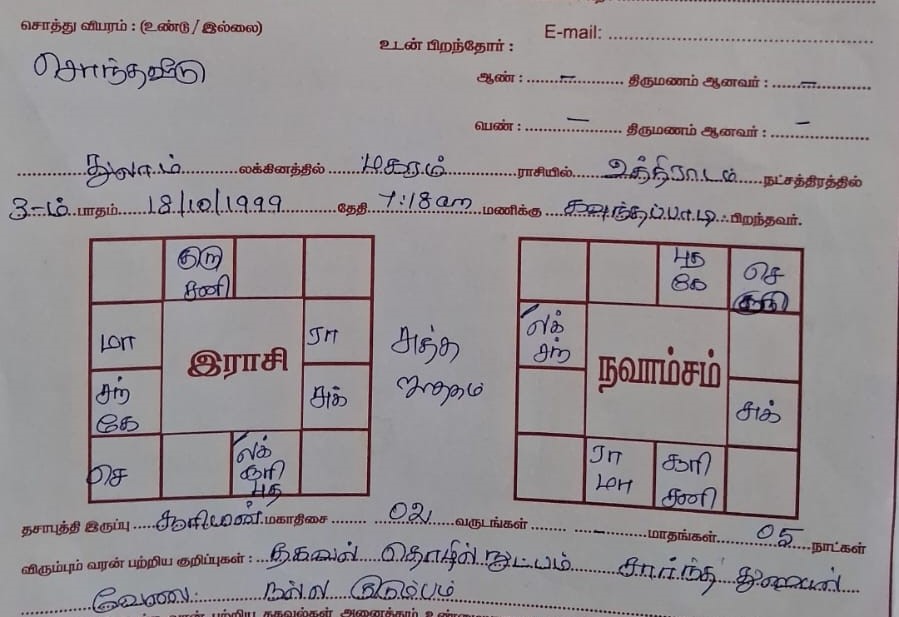 சொத்து விபரம் : (உண்டு / இல்லை)
E-mail: ........................
உடன் பிறந்தோர் :
சொந்தவீடு
ஆண் : ..... – ..... திருமணம் ஆனவர் : ..... – .....
பெண் : ..... – ..... திருமணம் ஆனவர் : ..... – .....
துலாம் லக்கினத்தில் மகரம் ராசியில் உத்திராடம் நட்சத்திரத்தில்
3-ம் பாதம் 18/10/1999 தேதி 7:18am மணிக்கு கவுந்தப்பாடி பிறந்தவர்.
குரு
சனி
மா
ரா
இராசி
சந்
கே
சுக்
செ
லக்
சூரி
புத
சுத்த
ஜாதகம்
புத
கே
செ
குரு
லக்
சந்
நவாம்சம்
சுக்
ரா
மா
சூரி
சனி
தசாபுத்தி இருப்பு சூரியன் மகாதிசை 02 வருடங்கள் – மாதங்கள் 05 நாட்கள்
விரும்பும் வரன் பற்றிய குறிப்புகள் : தகவல் தொழில் நுட்பம் சார்ந்த துறையில்
வேலை. நல்ல குடும்பம்